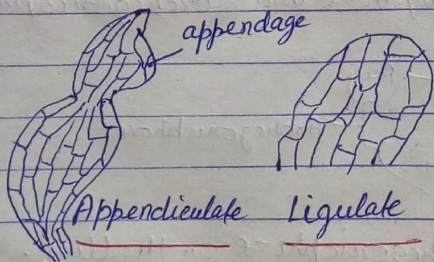 appendage
Appendiculate Ligulate